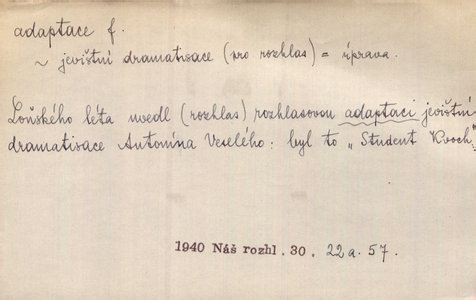 adaptace f.
~ jevištní dramatisace (pro rozhlas) = úprava.
Loňského léta uvedl (rozhlas) rozhlasovou adaptaci jevištní
dramatisace Antonína Veselého: byl to „Student Kvoch".
1940 Náš rozhl. 30, 22 a. 57.